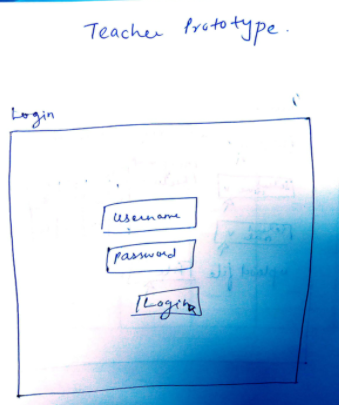 Teacher Prototype.
Login
Username
Password
Login